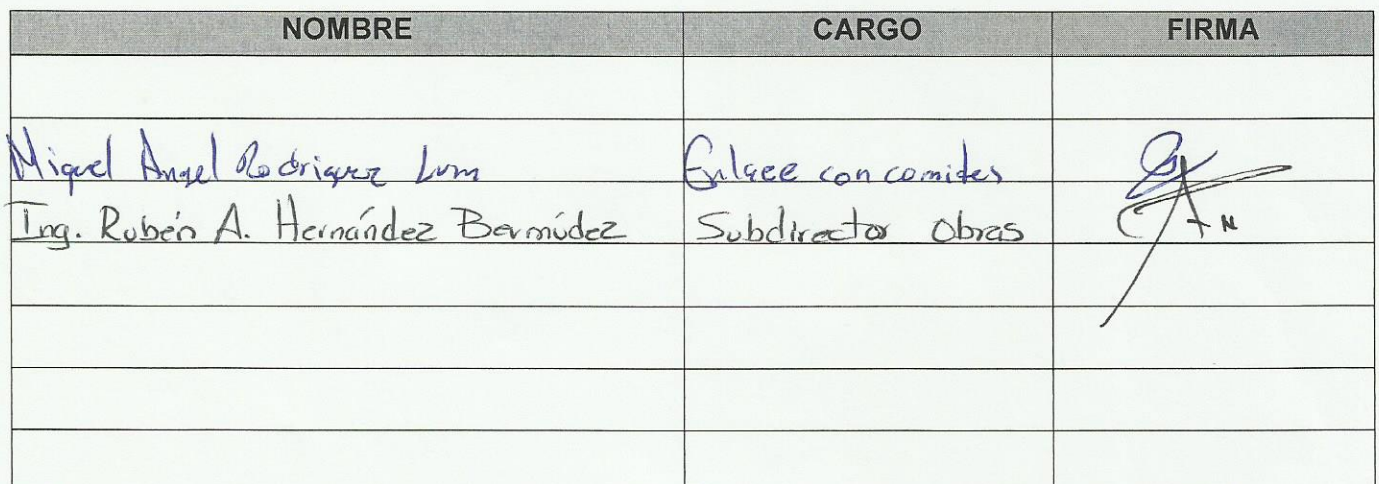 NOMBRE CARGO FIRMA
Miguel Angel Rodriguez Lum Enlace con comites
Ing. Rubén A. Hernández Bermúdez Subdirector Obras